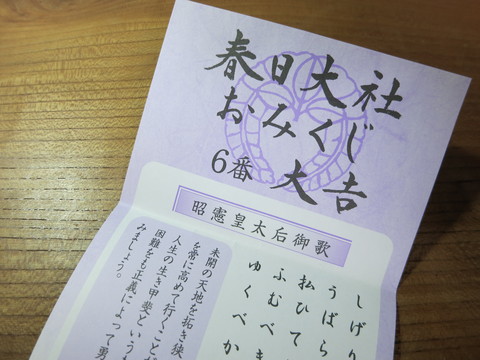 春日大社
おみくじ
6番 大吉
昭憲皇太后御歌
しげり
うばら
払ひて
ふむべき
ゆくべか
未開の天地を拓き狭
を常に高めて行くこと
人生の生き甲斐という
困難をも正義によって勇
みましょう。